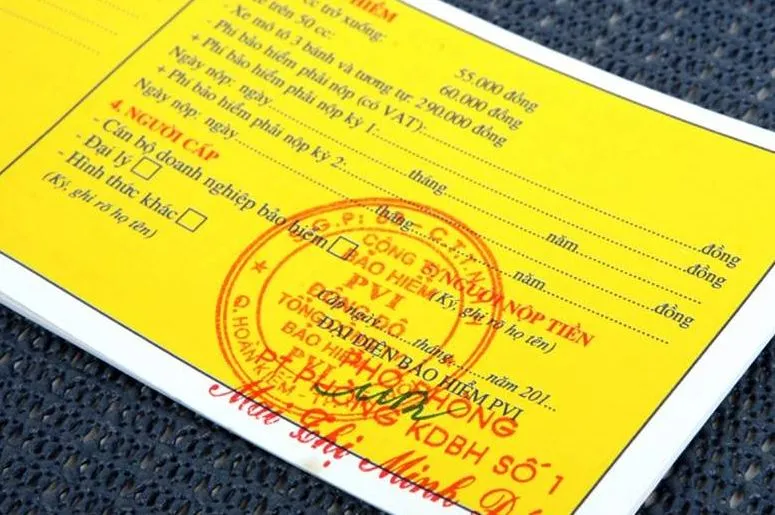 HIỂM
cc trở xuống: 55.000 đồng
trên 50 cc: 60.000 đồng
- Xe mô tô 3 bánh và tương tự: 290.000 đồng
+ Phí bảo hiểm phải nộp (có VAT):..........đồng
+ Phí bảo hiểm phải nộp kỳ 1:..........đồng
Ngày nộp: ngày..........tháng..........năm..........
+ Phí bảo hiểm phải nộp kỳ 2:..........đồng
Ngày nộp: ngày..........tháng..........năm..........
4. NGƯỜI CẤP
- Cán bộ doanh nghiệp bảo hiểm □
- Đại lý □
- Hình thức khác □
(Ký, ghi rõ họ tên)
NGƯỜI NỘP TIỀN
(Ký, ghi rõ họ tên)
Cấp ngày..........tháng..........năm 201...
ĐẠI DIỆN BẢO HIỂM PVI
CÔNG TY
BẢO HIỂM
PVI
ĐÔNG ĐÔ
TỔNG
BẢO HIỂM
PVI
Q. HOÀN KIẾM -
PHÓ PHÒNG
PT PHÒNG KDBH SỐ 1
Mai Thị Minh